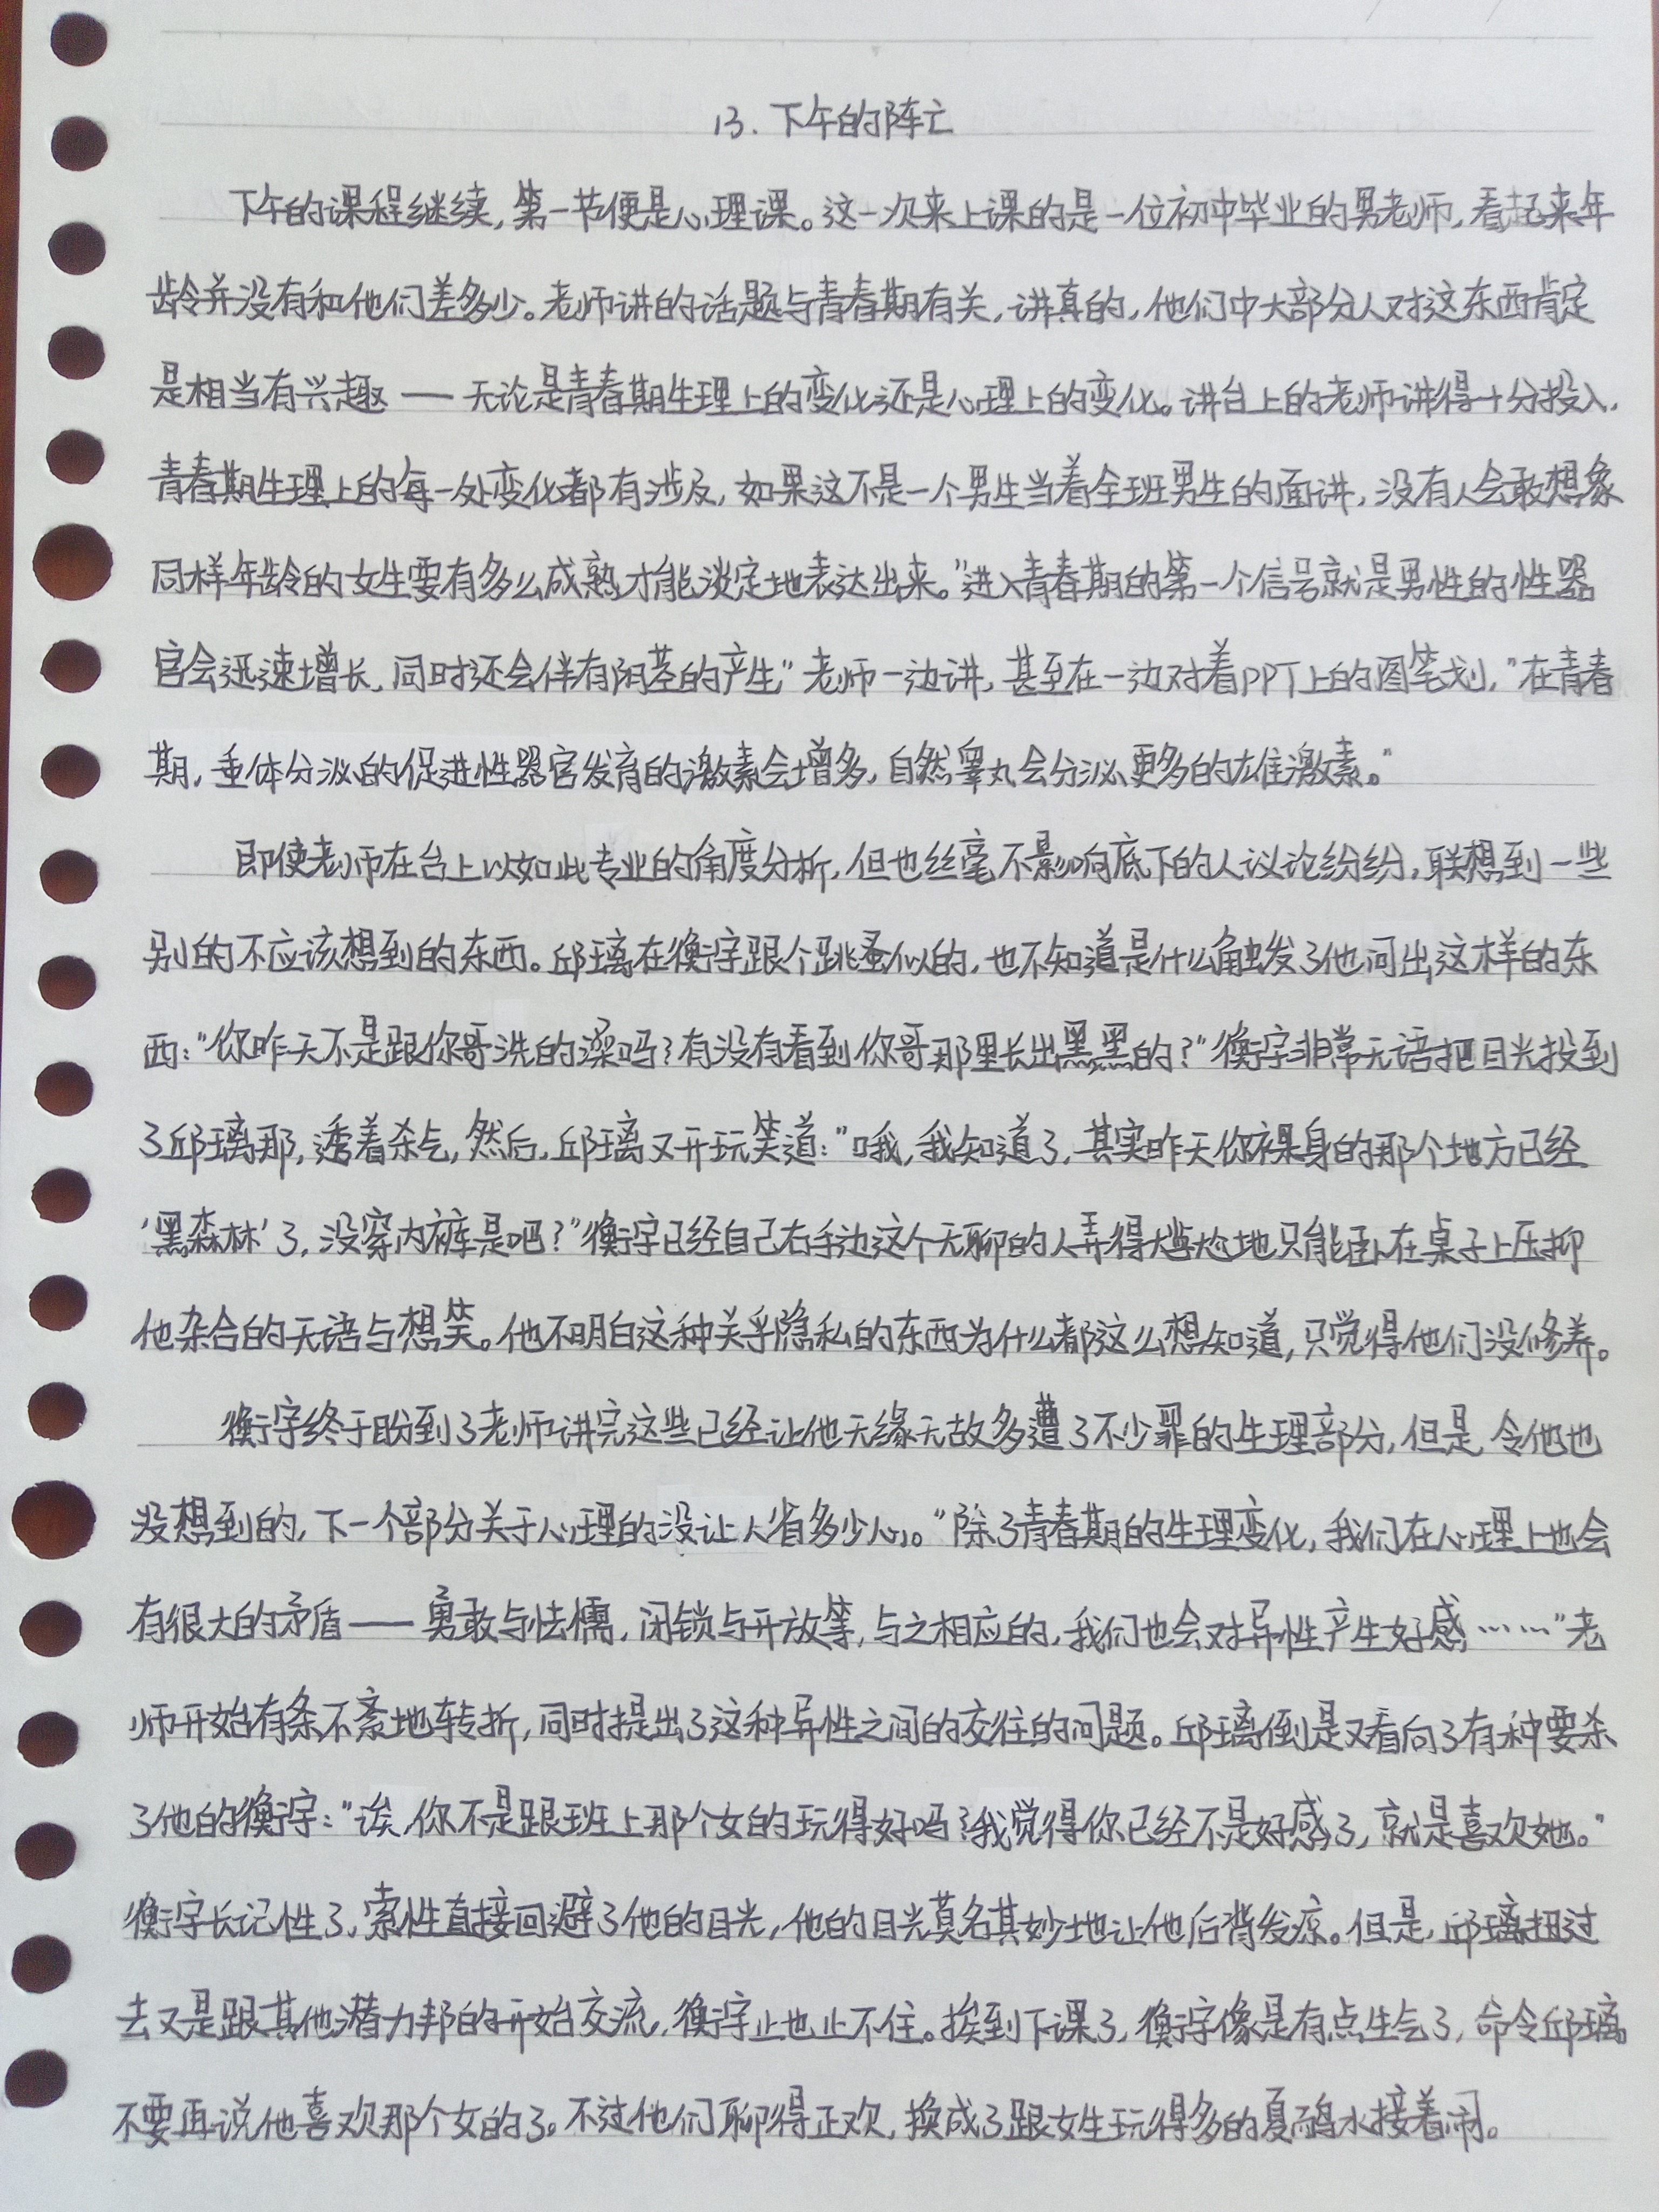 13. 下午的阵亡
下午的课程继续, 第一节便是心理课。这一次来上课的是一位初中毕业的男老师, 看起来年
龄并没有和他们差多少。老师讲的话题与青春期有关, 讲真的, 他们中大部分人对这东西肯定
是相当有兴趣——无论是青春期生理上的变化还是心理上的变化。讲台上的老师讲得十分投入,
青春期生理上的每一处变化都有涉及, 如果这不是一个男生当着全班男生的面讲, 没有人会敢想象
同样年龄的女生要有多么成熟才能淡定地表达出来。"进入青春期的第一个信号就是男性的性器
官会迅速增长, 同时还会伴有阴茎的产生," 老师一边讲, 甚至在一边对着PPT上的图笔划, "在青春
期, 垂体分泌的促进性器官发育的激素会增多, 自然睾丸会分泌更多的雄激素。"
即使老师在台上以如此专业的角度分析, 但也丝毫不影响底下的人议论纷纷, 联想到一些
别的不应该想到的东西。邱璃在衡宇跟个跳蚤似的, 也不知道是什么触发了他问出这样的东
西: "你昨天不是跟你哥洗的澡吗? 有没有看到你哥那里长出黑黑的?" 衡宇非常无语把目光投到
了邱璃那, 透着杀气, 然后, 邱璃又开玩笑道: "哦, 我知道了, 其实昨天你裸身的那个地方已经
'黑森林'了, 没穿内裤是吧?" 衡宇已经自己右手边这个无聊的人弄得尴尬地只能卧在桌子上压抑
他杂合的无语与想笑。他不明白这种关乎隐私的东西为什么都这么想知道, 只觉得他们没修养。
衡宇终于盼到了老师讲完这些已经让他无缘无故多遭了不少罪的生理部分, 但是, 令他也
没想到的, 下一个部分关于心理的没让人省多少心。"除了青春期的生理变化, 我们在心理上也会
有很大的矛盾——勇敢与怯懦, 闭锁与开放等, 与之相应的, 我们也会对异性产生好感……"老
师开始有条不紊地转折, 同时提出了这种异性之间的交往的问题。邱璃倒是又看向了有种要杀
了他的衡宇: "诶, 你不是跟班上那个女的玩得好吗? 我觉得你已经不是好感了, 就是喜欢她。"
衡宇长记性了, 索性直接回避了他的目光, 他的目光莫名其妙地让他后背发凉。但是, 邱璃扭过
去又是跟其他潜力邦的开始交流, 衡宇止也止不住。挨到下课了, 衡宇像是有点生气了, 命令邱璃
不要再说他喜欢那个女的了。不过他们聊得正欢, 换成了跟女生玩得多的夏鹬水接着闹。